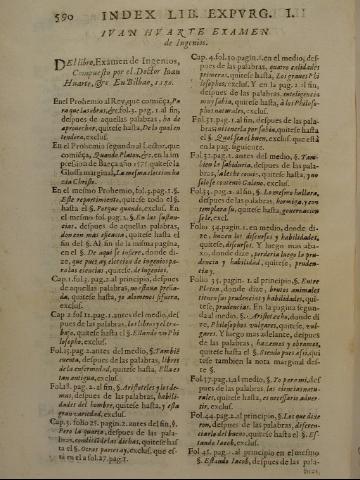 590 INDEX LIB. EXPVRG. I.
IVAN HVARTE EXAMEN
de Ingenios.
DEl libro, Examen de Ingenios,
Compuesto por el Doctor Iuan
Huarte, &c. En Bilbao, 1580.
En el Prohemio al Rey, que comiẽça, Pa
ra que las obras, &c. fol. 3. pag. 1. al fin,
despues de aquellas palabras, ha de
aprouechar, quitese hasta, De lo qual en
tendera, exclus.
En el Prohemio segundo al Lector, que
comiẽça, Quando Platon, &c. en la im
pression de Barça año 1575 quitese la
Glossa marginal, La mesma eleccion ha
zia Christo.
En el mesmo Prohemio, fol. 5. pag. 1. §.
Este repartimiento, quitese todo el §.
hasta el §. Porque quando, exclus. En
el mesmo fol. pag. 2. §. En las sustan
cias, despues de aquellas palabras,
hasta el fin
del §. Al fin de la mesma pagina,
en el §. De aqui se infiere, donde di-
ze, que pues ay electiuo de ingenios pa-
ra las ciencias, quitese, de ingenios.
Cap. 1. fol. 3. pag. 2. al principio, despues
de aquellas palabras,
quitese hasta, yo alomenos si fuera,
exclus.
Cap. 2. fol. 11. pag. 1. antes del medio, des
pues de las palabras,
quitese hasta el §. Estando vn Phi
losopho, exclus.
Fol. 15. pag. 2. antes del medio, §. Tambiẽ
cuenta, despues de las palabras, libres
de la enfermedad, quitese hasta, Ella es
tan antigua, exclus.
Fol. 18. pag. 2. al fin, §. Aristoteles y los de-
mas, despues de las palabras, habili-
dades del hombre, quitese hasta, y esta
gran variedad, exclus.
Cap. 3. folio 25. pagin. 2. antes del fin, §.
Pero la quarta, despues de las pala-
bras, quitese has
ta el §. Otras partes ay, exclus. que es-
ta en el a fol. 27. pag. 1.
Cap. 4. fol. 30. pagin. 1. en el medio, des-
pues de las palabras, quatro calidades
primeras, quitese hasta, Los graues Phi
losophos, exclus. Y en la pag. 2. al fin,
despues de las palabras, inteligencia
muy sabia, quitese hasta, à los Philoso-
phos naturales, exclus.
Fol. 31. pag. 1. al fin, despues de las pala-
bras, quitese hasta,
el §. Qual sea el buen, exclus. que està
en la pag. siguiente.
Fol. 32. pag. 1. antes del medio, §. Tam-
bien la sabiduria, despues de las pala-
bras, quitese hasta, y no
solo se contento Galeno, exclus.
Fol. 33. pag. 2. al fin, §. Lo mesmo hallara,
despues de las palabras, hormiga, y con
templara su, quitese hasta, generacion
sele, excl.
Folio 34. pagin. 1. en medio, donde di-
ze, hazen los discursos y habilidades,
quitese, discursos. Y luego mas aba-
xo, donde dize, perderia luego la pru-
dencia y habilidad, quitese, pruden-
cia y.
Folio 35. pagin. 1. al principio, §. Entre
Platon, donde dize, brutos animales
tienen sus prudencias y habilidades, qui-
tese, prudencias. En la pagina segun-
da al medio, §. Aristot. echo, donde di
ze, Philosophos vulgares, quitese, vul-
gares. Y luego mas adelante, despues
de las palabras, hazemos y obramos,
quitese hasta el §. Siendo pues assi, qui-
tese tambien la nota marginal des-
te §.
Fol. 37. pag. 1. al medio, §. Yo para mi, des-
pues de las palabras, las ciencias natu-
rales, quitese hasta, es necessario aduer-
tir, exclus.
Fol. 44. pag. 2. al principio, §. Los que dize
ron, despues de las palabras, diferen-
cia de buena, quitese hasta el §. Es-
tando Iacob, exclus.
Fol. 45. pag. 2. al principio en el mesmo
§. Estando Iacob, despues de las pala-
bras,